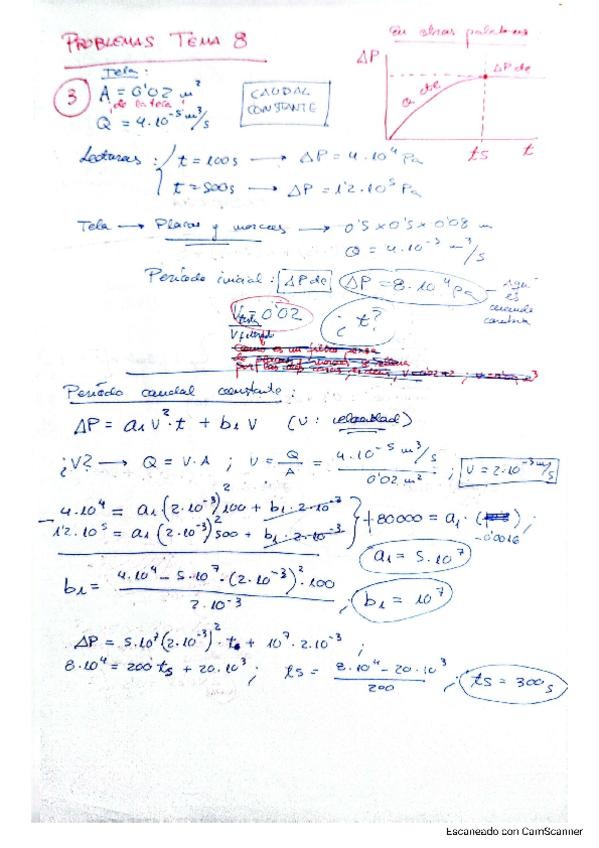 PROBLEMAS TEMA 8
En otras palabras:
ΔP
ΔP cte
Q cte
ts
t
3
Tela:
A = 0'02 m²
¡de la tela!
Q = 4·10⁻⁵ m³/s
CAUDAL CONSTANTE
Lecturas: t = 100s → ΔP = 4·10⁴ Pa
t = 500s → ΔP = 1'2·10⁵ Pa
Tela → Placas y marcos → 0'5 x 0'5 x 0'08 m
Q = 4·10⁻³ m³/s
Período inicial: ΔP cte ΔP = 8·10⁴ Pa
Aquí es cuando cambia
= 0'02
V filtrado
¿t?
Como es un filtro prensa
de placas y marcos
por las dos caras,
Período caudal constante:
ΔP = a₁v²·t + b₁v (v: velocidad)
¿v? → Q = v·A ; v = Q/A = 4·10⁻⁵ m³/s / 0'02 m² ; v = 2·10⁻³ m/s
4·10⁴ = a₁(2·10⁻³)²100 + b₁·2·10⁻³
- 12·10⁵ = a₁(2·10⁻³)²500 + b₁·2·10⁻³ } +80000 = a₁·( ) ;
-0'0016
a₁ = 5·10⁷
b₁ = 4·10⁴ - 5·10⁷·(2·10⁻³)²·100 / 2·10⁻³ ; b₁ = 10⁷
ΔP = 5·10⁷(2·10⁻³)²·ts + 10⁷·2·10⁻³ ;
8·10⁴ = 200 ts + 20·10³ ; ts = 8·10⁴ - 20·10³ / 200 ; ts = 300s
Escaneado con CamScanner